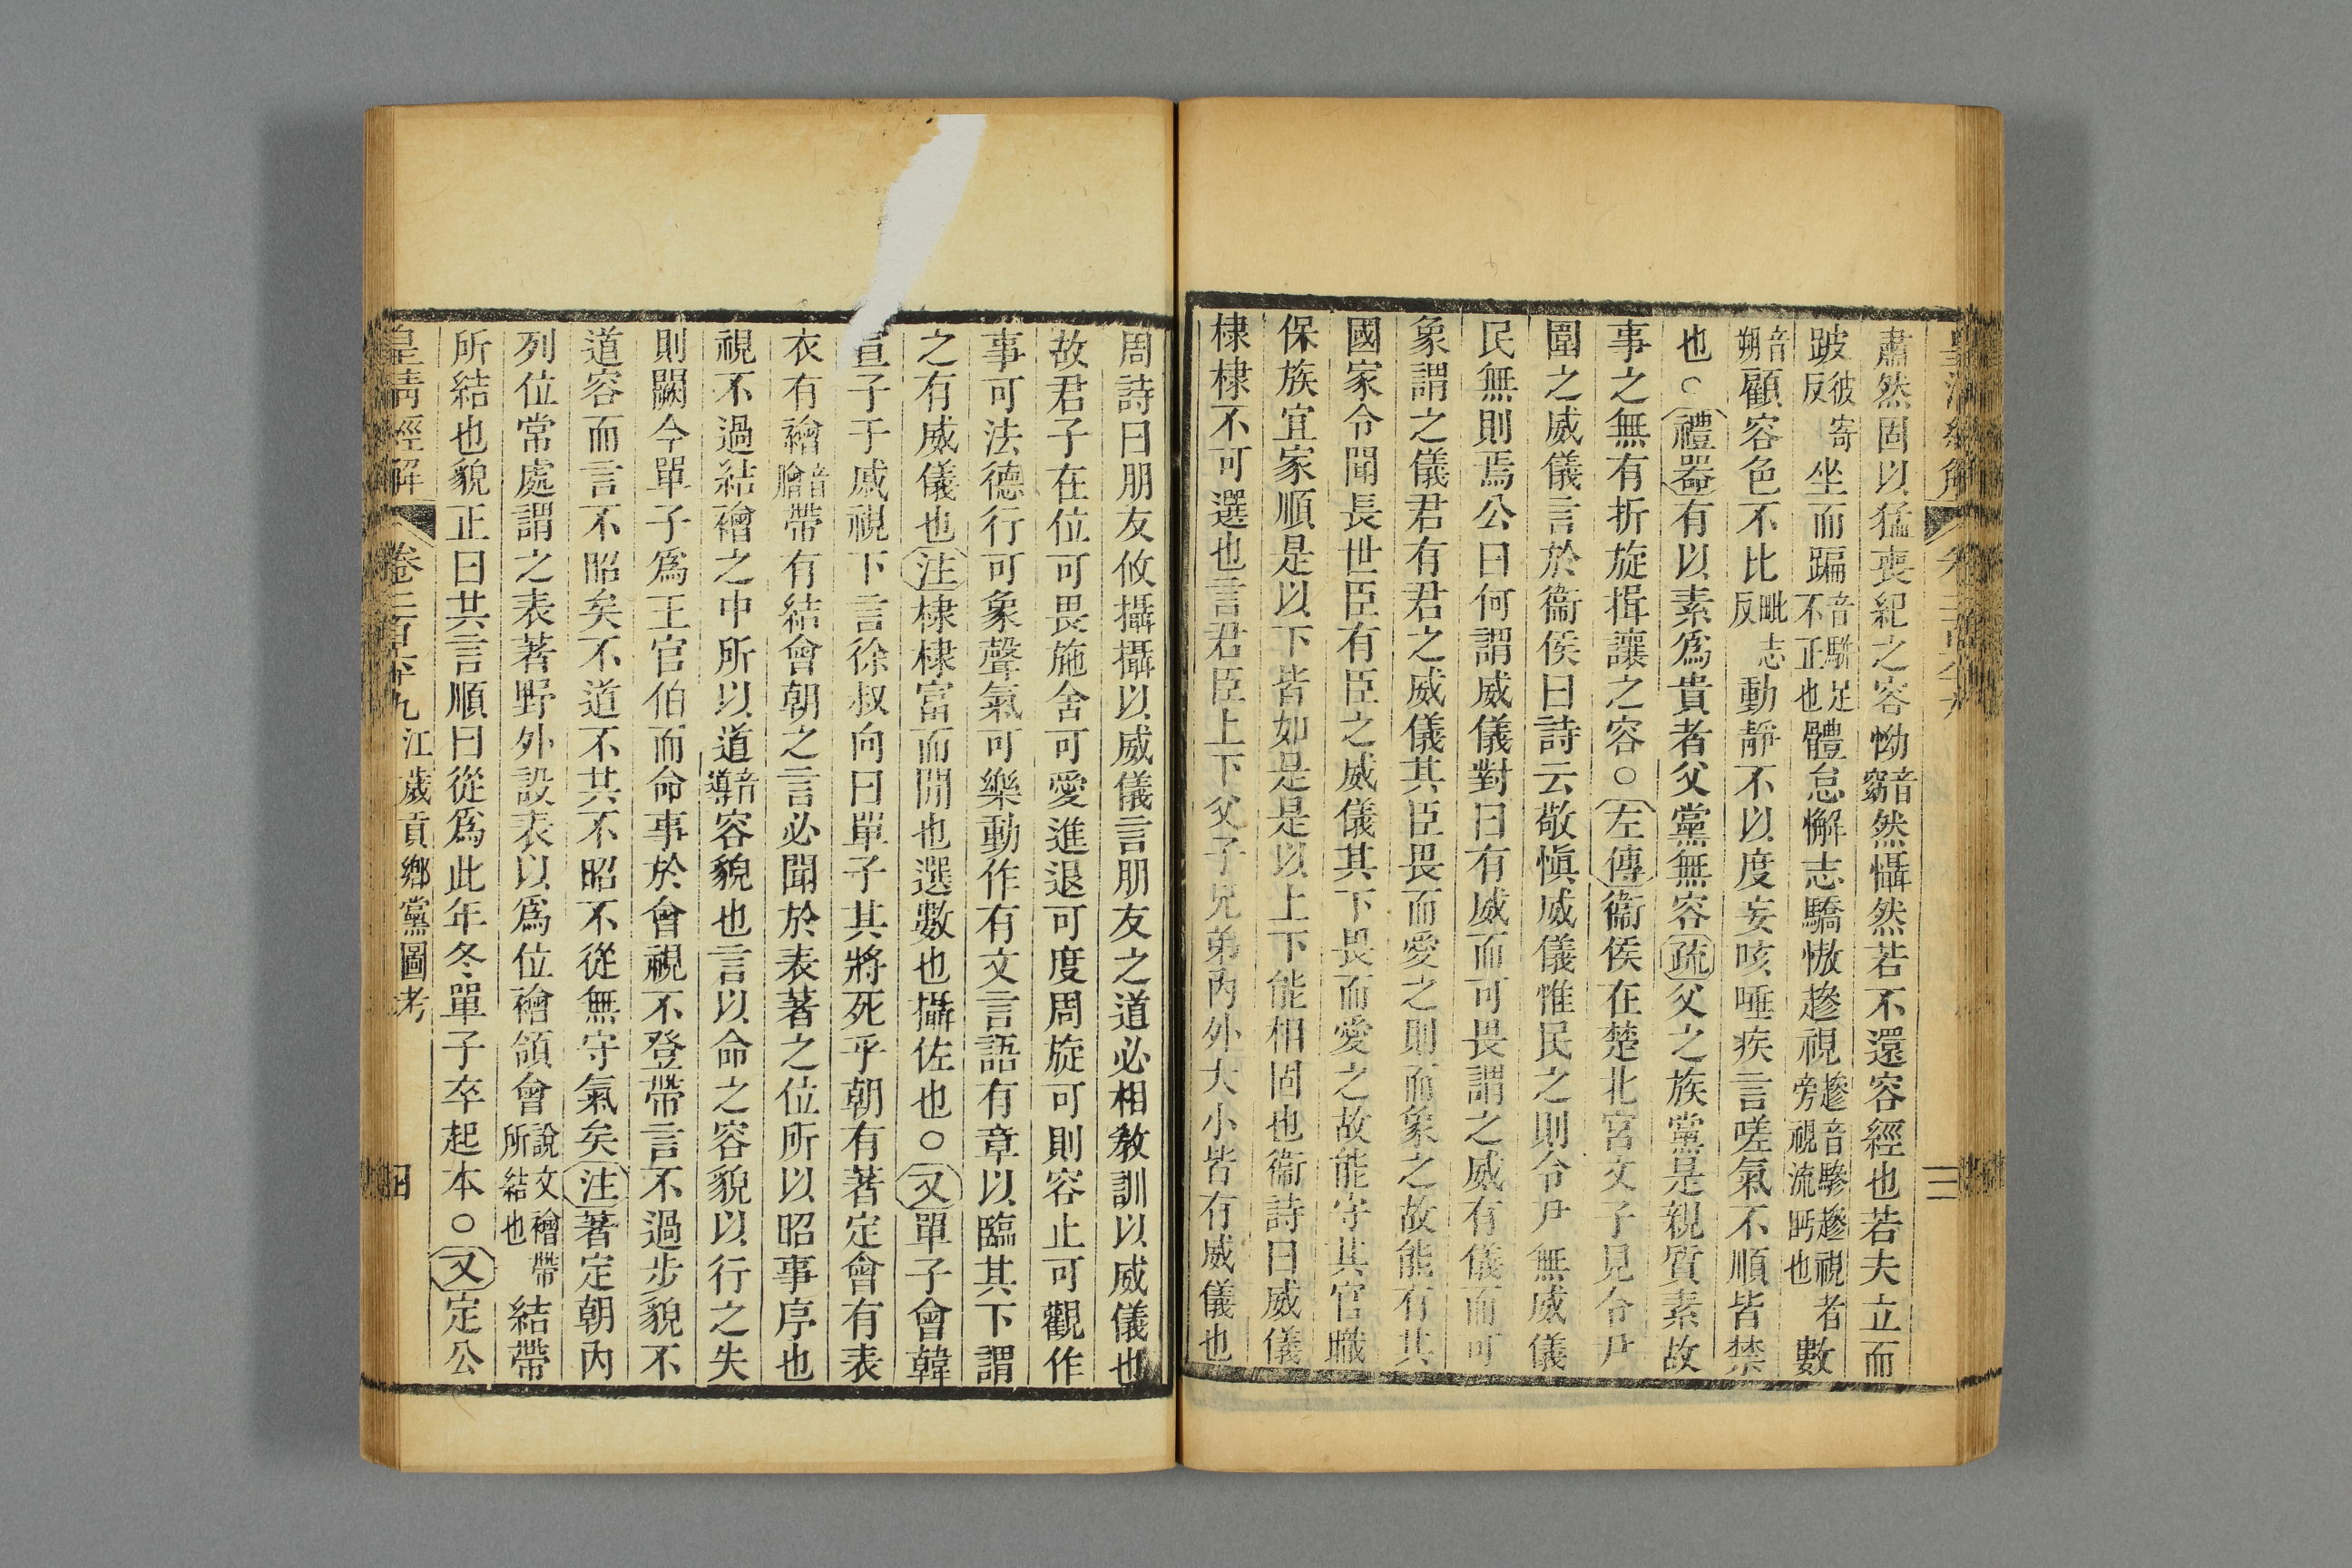 肅然固以猛喪紀之容怮音窈然懾然若不還容經也若夫立而
跛彼寄反坐而蹁音駢足不正也體怠懈志驕慠趁視趁音驂趁視者旁視流眄也數
音朔顧容色不比毗志反動靜不以度妄咳唾疾言嗟氣不順皆禁
也○禮器有以素爲貴者父黨無容疏父之族黨是親質素故
事之無有折旋揖讓之容○左傳衞侯在楚北宮文子見令尹
圍之威儀言於衞侯曰詩云敬愼威儀惟民之則令尹無威儀
民無則焉公曰何謂威儀對曰有威而可畏謂之威有儀而可
象謂之儀君有君之威儀其臣畏而愛之則而象之故能有其
國家令聞長世臣有臣之威儀其下畏而愛之故能守其官職
保族宜家順是以下皆如是是以上下能相固也衞詩曰威儀
棣棣不可選也言君臣上下父子兄弟內外大小皆有威儀也
周詩曰朋友攸攝攝以威儀言朋友之道必相敎訓以威儀也
故君子在位可畏施舍可愛進退可度周旋可則容止可觀作
事可法德行可象聲氣可樂動作有文言語有章以臨其下謂
之有威儀也注棣棣富而閒也選數也攝佐也○又單子會韓
宣子于戚視下言徐叔向曰單子其將死乎朝有著定會有表
衣有襘音膾帶有結會朝之言必聞於表著之位所以昭事序也
視不過結襘之中所以道音導容貌也言以命之容貌以行之失
則闕今單子爲王官伯而命事於會視不登帶言不過步貌不
道容而言不昭矣不道不共不昭不從無守氣矣注著定朝內
列位常處謂之表著野外設表以爲位襘領會說文襘帶所結也結帶
所結也貌正曰共言順曰從爲此年冬單子卒起本○又定公
皇淸經解 卷二百六十九 江歲貢鄉黨圖考 四